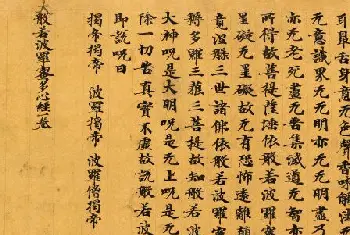 耳鼻舌身意无色聲香味觸法无
无意識界无无明亦无无明盡乃
亦无老死盡无苦集滅道无智亦
所得故菩提薩埵依般若波羅蜜
罣礙无罣礙故无有恐怖遠離顛
竟涅槃三世諸佛依般若波羅蜜
耨多羅三藐三菩提故知般若波
大神呪是大明呪是无上呪是无
除一切苦真實不虛故說般若波
即說呪曰
揭帝揭帝 波羅揭帝 波羅僧揭帝
般若波羅蜜多心經一卷